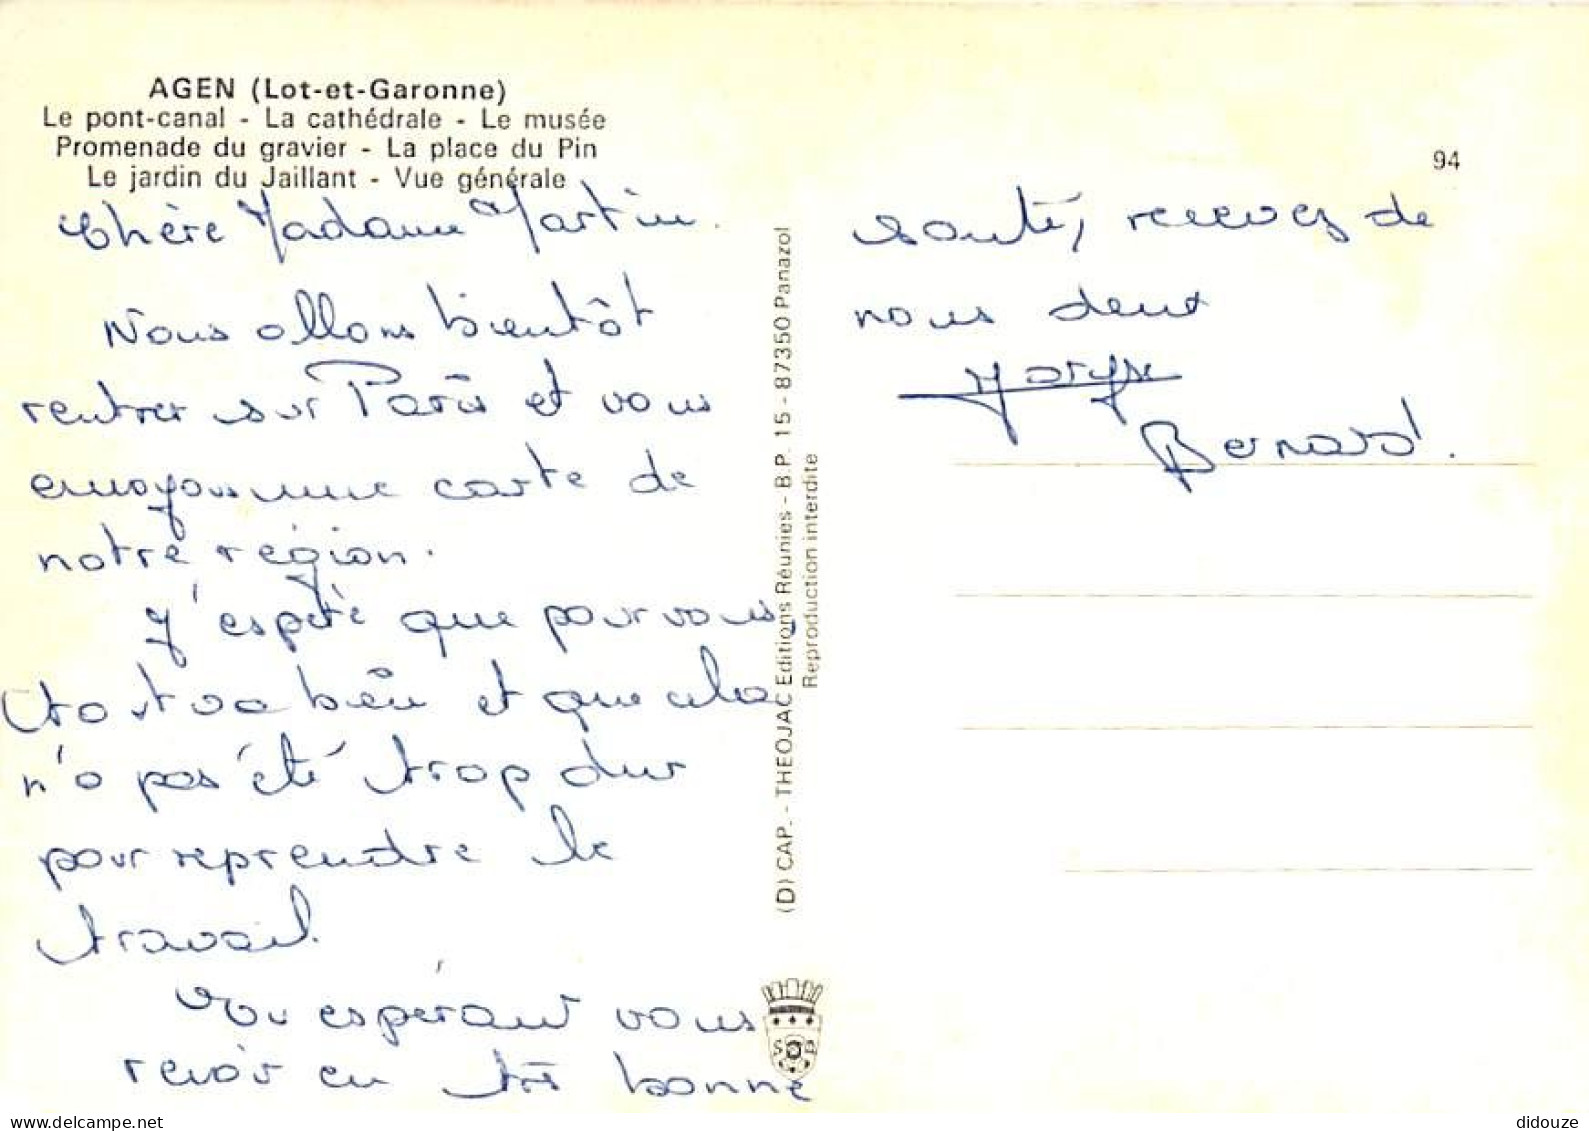 AGEN (Lot-et-Garonne)
Le pont-canal - La cathédrale - Le musée
Promenade du gravier - La place du Pin
Le jardin du Jaillant - Vue générale
Chère Madame Martin.
Nous allons bientôt
rentrer sur Paris et vous
envoyons une carte de
notre région.
J'espère que pour vous,
tout va bien et que cela
n'a pas été trop dur
pour reprendre le
travail.
En espérant vous
revoir en très bonne
94
santé, recevez de
nous deux
Maryse
Bernard.
(D) CAP. - THEOJAC Editions Réunies - B.P. 15 - 87350 Panazol
Reproduction interdite
delcampe.net
didouze